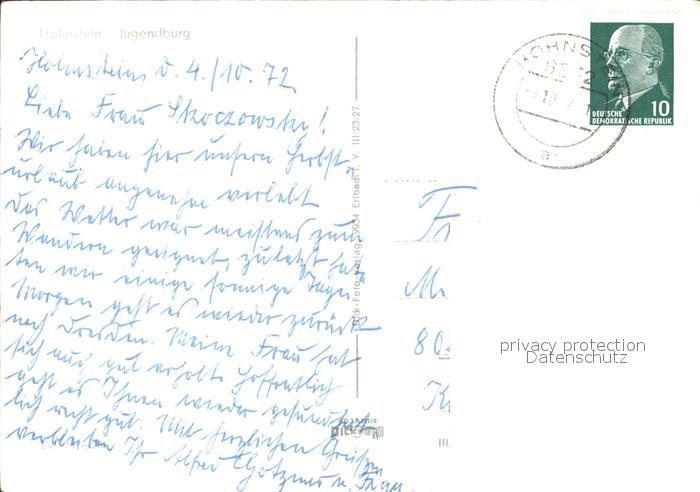 Hohnstein Jugendburg
Hohnstein d. 4./10.72
Liebe Frau Skoczowsky!
Wir haben hier unsern Herbst-
urlaub angenehm verlebt
Das Wetter war meistens zum
Wandern geeignet, zuletzt hat-
ten wir einige sonnige Tage.
Morgen geht es wieder zurück
nach Dresden. Meine Frau hat
sich auch gut erholt. Hoffentlich
geht es Ihnen wieder gesundheit-
lich recht gut. Mit herzlichen Grüßen
verbleiben Ihr Alfred u. Frau
Bick-Foto-Verlag, 9934 Erlbach i. V. III/23/27
HOHNSTEIN
a
10
DEUTSCHE
DEMOKRATISCHE REPUBLIK
Fr
M
80
K
III
privacy protection
Datenschutz